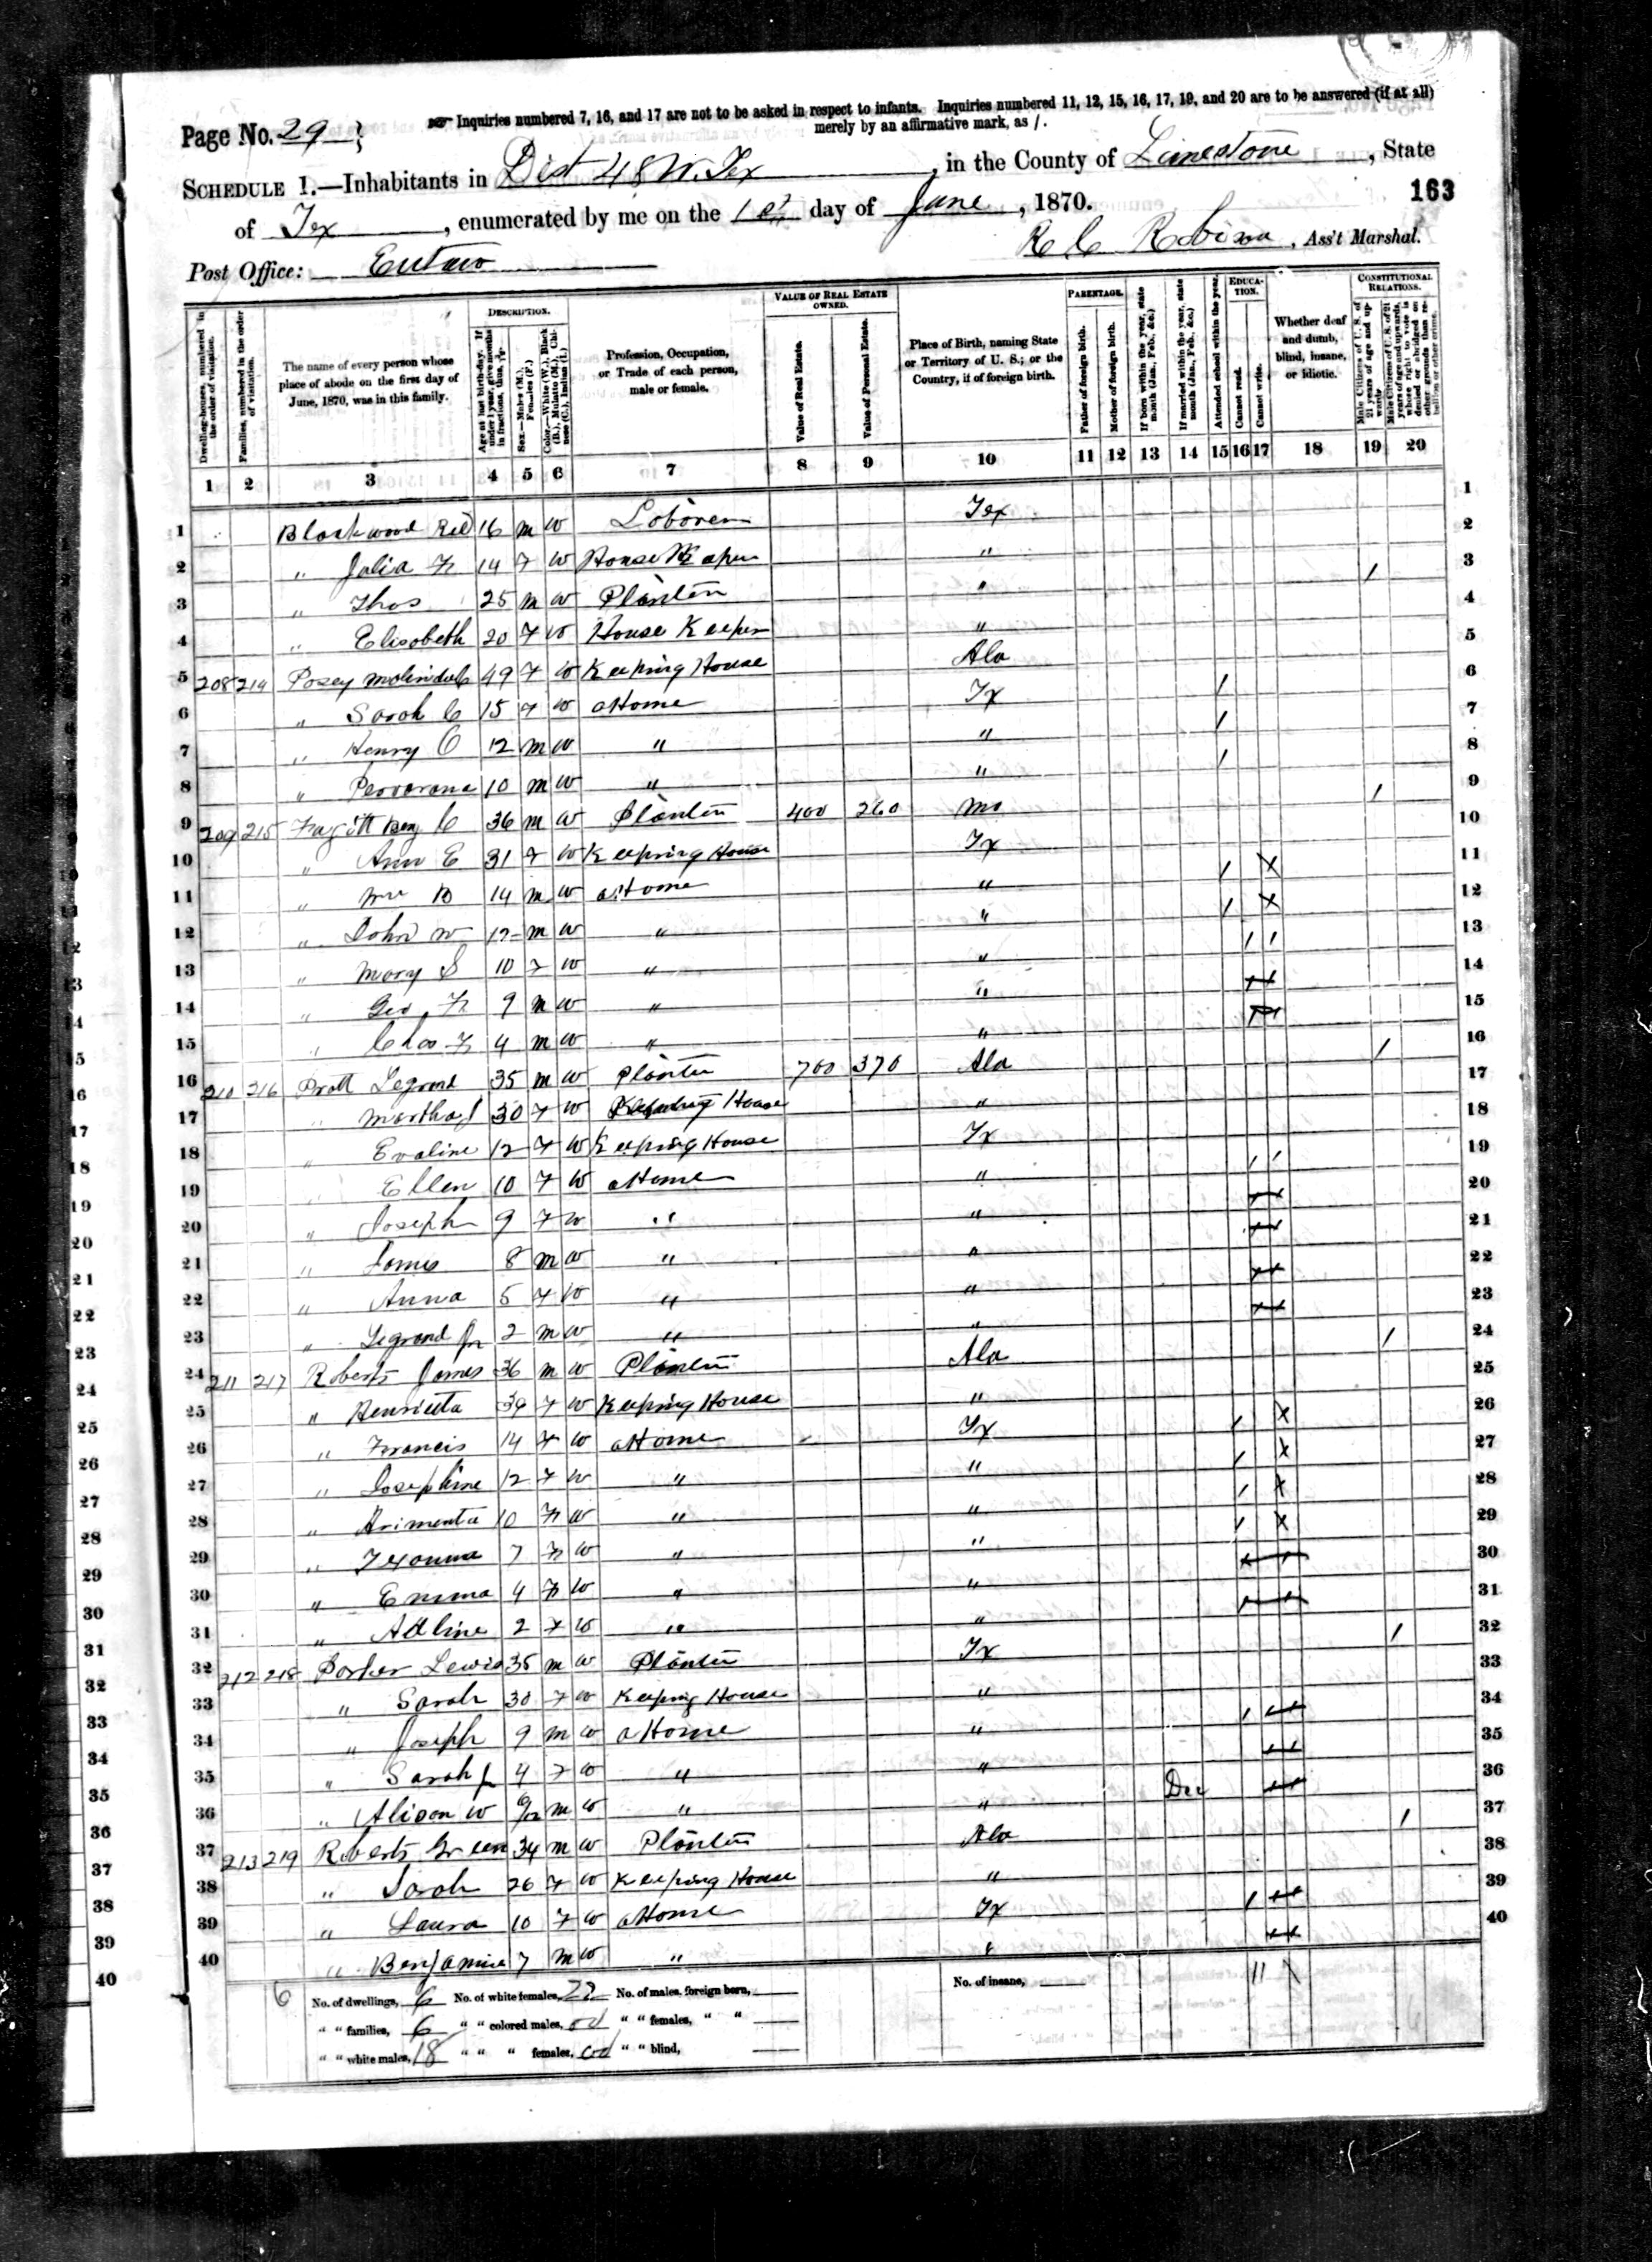 Page No. 29
Inquiries numbered 7, 16, and 17 are not to be asked in respect to infants. Inquiries numbered 11, 12, 15, 16, 17, 19, and 20 are to be answered (if at all)
merely by an affirmative mark, as /.
SCHEDULE 1.—Inhabitants in Dist 48 W. Tex, in the County of Limestone, State
of Tex, enumerated by me on the 1st day of June, 1870.
163
Post Office: Eutaw
R C, Ass't Marshal.
Dwelling-houses, numbered in the order of visitation.
Families, numbered in the order of visitation.
The name of every person whose place of abode on the first day of June, 1870, was in this family.
DESCRIPTION.
Age at last birth-day. If under 1 year, give months in fractions, thus,
Sex.—Males (M.), Females (F.)
Color.—White (W.), Black (B.), Mulatto (M.), Chinese (C.), Indian (I.)
Profession, Occupation, or Trade of each person, male or female.
VALUE OF REAL ESTATE OWNED.
Value of Real Estate.
Value of Personal Estate.
Place of Birth, naming State or Territory of U. S.; or the Country, if of foreign birth.
PARENTAGE.
Father of foreign birth.
Mother of foreign birth.
If born within the year, state month (Jan., Feb., &c.)
If married within the year, state month (Jan., Feb., &c.)
Attended school within the year.
EDUCATION.
Cannot read.
Cannot write.
Whether deaf and dumb, blind, insane, or idiotic.
CONSTITUTIONAL RELATIONS.
Male Citizens of U. S. of 21 years of age and upwards
Male Citizens of U. S. of 21 years of age and upwards, whose right to vote is denied or abridged on other grounds than rebellion or other crime.
1 2 3 4 5 6 7 8 9 10 11 12 13 14 15 16 17 18 19 20
1 Blackwood 16 m W Laborer Tex 1
2 " Julia F 14 F W House Keeper " 2
3 " Thos 25 m W Planter " / 3
4 " Elisabeth 20 F W House Keeper " 4
5 208 214 Posey 49 F W Keeping House Ala 5
6 " Sarah C 15 F W at Home Tx / 6
7 " Henry C 12 m W " " / 7
8 " 10 m W " " / 8
9 209 215 Benj C 36 m W Planter 400 260 Mo / 9
10 " Ann E 31 F W Keeping House Tx 10
11 " Wm B 14 m W at Home " / X 11
12 " John W 12 m W " " / X 12
13 " Mary S 10 F W " " / / 13
14 " Geo F 9 m W " " 14
15 " Chas F 4 m W " " 15
16 210 216 Pratt Legrand 35 m W Planter 700 370 Ala / 16
17 " Martha J 30 F W Keeping House " 17
18 " Evaline 12 F W Keeping House Tx 18
19 " Ellen 10 F W at Home " / / 19
20 " Joseph 9 F W " " 20
21 " James 8 m W " " 21
22 " Anna 5 F W " " 22
23 " Legrand Jr 2 m W " " 23
24 211 217 Roberts James 36 m W Planter Ala / 24
25 " Henrietta 34 F W Keeping House " 25
26 " Francis 14 F W at Home Tx / X 26
27 " Josephine 12 F W " " / X 27
28 " Arimenta 10 F W " " / X 28
29 " 7 F W " " / X 29
30 " Emma 4 F W " " 30
31 " Adline 2 F W " " 31
32 212 218 Parker Lewis 35 m W Planter Tx / 32
33 " Sarah 30 F W Keeping House " 33
34 " Joseph 9 m W at Home " / 34
35 " Sarah J 4 F W " " 35
36 " Alison W 6/12 m W " " Dec 36
37 213 219 Roberts Green 34 m W Planter Ala / 37
38 " Sarah 26 F W Keeping House " 38
39 " Laura 10 F W at Home Tx / 39
40 " Benjamin 7 m W " " 40
6 No. of dwellings, 6 No. of white females, 22 No. of males, foreign born, No. of insane,
" " families, 6 " " colored males, " " females, " "
" " white males, 18 " " " females, " " blind,